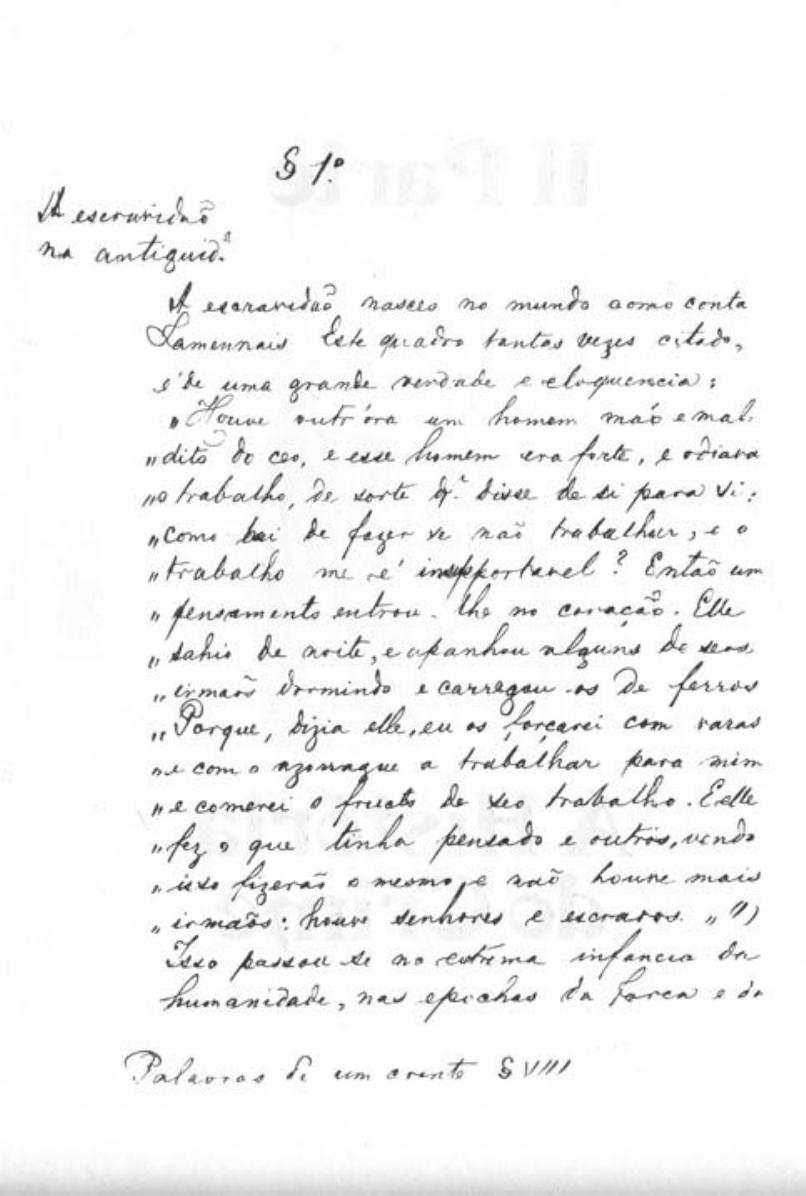 § 1.º
A escravidaõ
na antiguid.ᵉ
A escravidaõ nasceo no mundo como conta
Lamennais Este quadro tantas vezes citado,
é de uma grande verdade e eloquencia:
"Houve outr'óra um homem máo e mal-
"dito do ceo, e esse homem era forte, e odiava
"o trabalho, de sorte q.ᵉ disse de si para si:
"como hei de fazer se naõ trabalhar, e o
"trabalho me é insupportavel? Entaõ um
"pensamento entrou-lhe no coraçaõ. Elle
"sahio de noite, e apanhou alguns de seos
"irmaõs dormindo e carregou-os de ferros
"Porque, dizia elle, eu os forçarei com varas
"e com o azorrague a trabalhar para mim
"e comerei o fructo de seo trabalho. E elle
"fez o que tinha pensado e outros, vendo
"isso fizeraõ o mesmo, e naõ houve mais
"irmaõs: houve senhores e escravos. " ")
Isso passou-se na extrema infancia da
humanidade, nas epochas da força e do
Palavras de um crente § VIII
II Parte
A História
do Crime